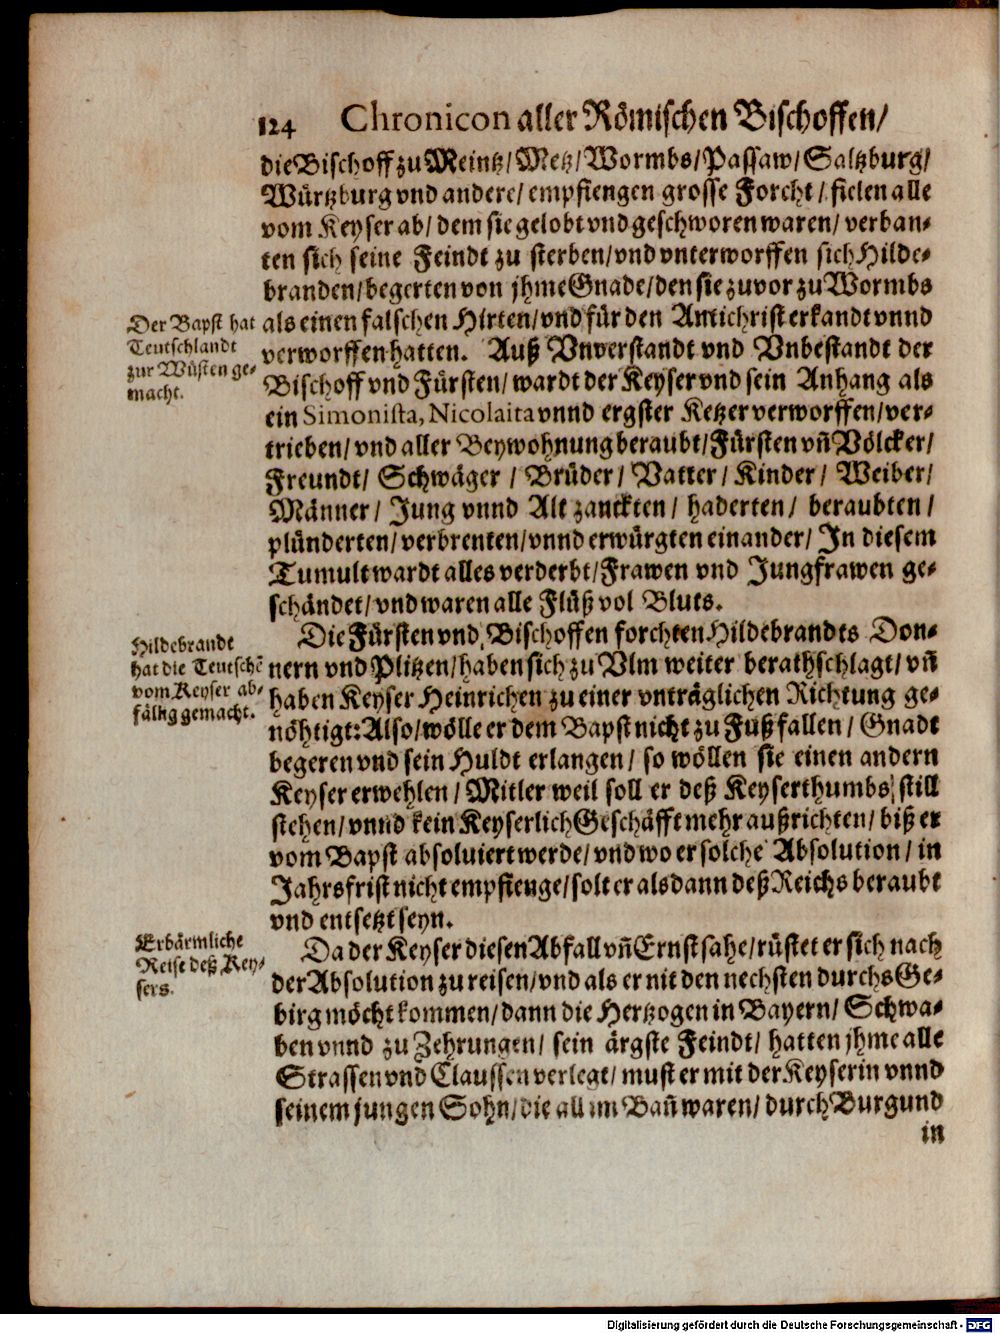 124 Chronicon aller Römischen Bischoffen/
die Bischoff zu Meintz/ Metz/ Wormbs/ Passaw/ Saltzburg/
Würtzburg vnd andere/ empfiengen grosse Forcht/ fielen alle
vom Keyser ab/ dem sie gelobt vnd geschworen waren/ verban-
ten sich seine Feindt zu sterben/ vnd vnterworffen sich Hilde-
branden/ begerten von jhme Gnade/ den sie zuvor zu Wormbs
als einen falschen Hirten/ vnd für den Antichrist erkandt vnnd
verworffen hatten. Auß Vnverstandt vnd Vnbestandt der
Bischoff vnd Fürsten/ wardt der Keyser vnd sein Anhang als
ein Simonista, Nicolaita vnnd ergster Ketzer verworffen/ ver-
trieben/ vnd aller Beywohnung beraubt/ Fürsten vñ Völcker/
Freundt/ Schwäger / Brüder/ Vatter/ Kinder/ Weiber/
Männer/ Jung vnnd Alt zanckten/ haderten/ beraubten/
plünderten/ verbrenten/ vnnd erwürgten einander/ In diesem
Tumult wardt alles verderbt/ Frawen vnd Jungfrawen ge-
schändet/ vnd waren alle Flüß vol Bluts.
Der Bapst hat
Teutschlandt
zur Wüsten ge-
macht.
Die Fürsten vnd Bischoffen forchten Hildebrandts Don-
nern vnd Plitzen/ haben sich zu Vlm weiter berathschlagt/ vñ
haben Keyser Heinrichen zu einer vnträglichen Richtung ge-
nöhtigt: Also/ wölle er dem Bapst nicht zu Fuß fallen/ Gnadt
begeren vnd sein Huldt erlangen/ so wöllen sie einen andern
Keyser erwehlen/ Mitler weil soll er deß Keyserthumbs still
stehen/ vnnd kein Keyserlich Geschäfft mehr außrichten/ biß er
vom Bapst absoluiert werde/ vnd wo er solche Absolution/ in
Jahrsfrist nicht empfienge/ solt er alsdann deß Reichs beraubt
vnd entsetzt seyn.
Hildebrandt
hat die Teutschẽ
vom Keyser ab-
fällig gemacht.
Da der Keyser diesen Abfall vñ Ernst sahe/ rüstet er sich nach
der Absolution zu reisen/ vnd als er nit den nechsten durchs Ge-
birg möcht kommen/ dann die Hertzogen in Bayern/ Schwa-
ben vnnd zu Zehrungen/ sein ärgste Feindt/ hatten jhme alle
Strassen vnd Claussen verlegt/ must er mit der Keyserin vnnd
seinem jungen Sohn/ die all im Bañ waren/ durch Burgund
in
Erbärmliche
Reise deß Key-
sers.
Digitalisierung gefördert durch die Deutsche Forschungsgemeinschaft - DFG